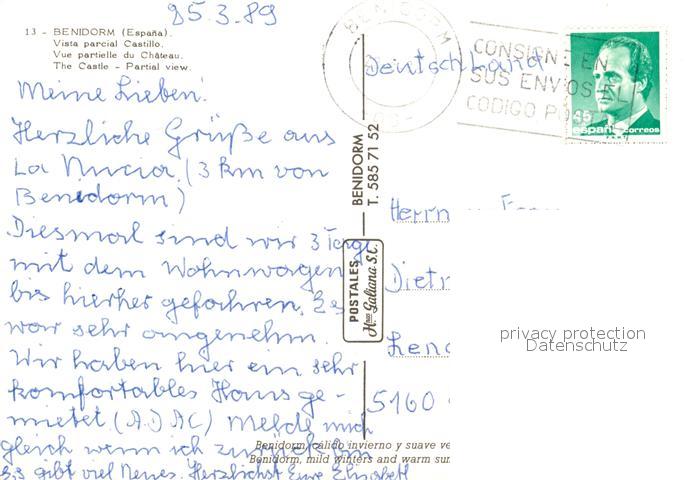 25.3.89
13 - BENIDORM (España).
Vista parcial Castillo.
Vue partielle du Château.
The Castle - Partial view.
Meine Lieben!
Herzliche Grüße aus
La Nucia (3 km von
Benidorm)
Diesmal sind wir 3 Tage
mit dem Wohnwagen
bis hierher gefahren. Es
war sehr angenehm.
Wir haben hier ein sehr
komfortables Haus ge-
mietet (ADAC) Melde mich
gleich wenn ich zurück bin
Es gibt viel Neues. Herzlichst Eure Elisabeth
POSTALES
Hnos Galiana S.C.
BENIDORM
T. 585 71 52
BENIDORM
CONSIGNE EN
SUS ENVIOS EL
CODIGO
35
españa correos
Deutschland
Herrn
5160
privacy protection
Datenschutz
Benidorm, cálido invierno y suave ve
Benidorm, mild winters and warm sum